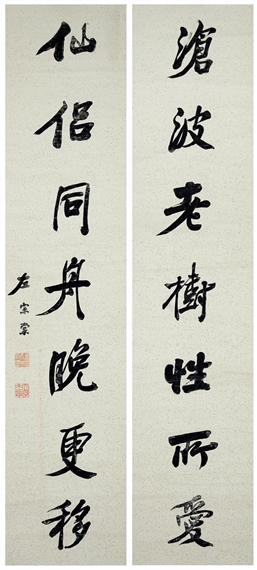 滄波老樹性所愛
仙侶同舟晚更移
左宗棠